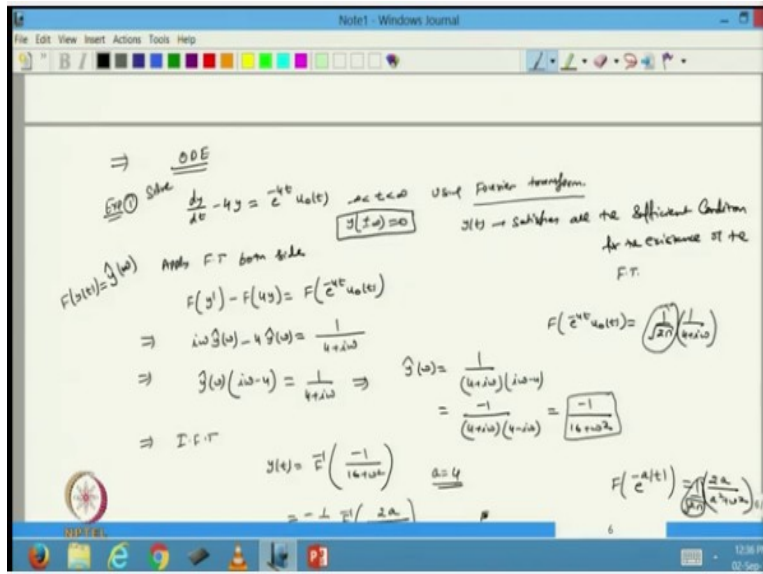 Note1 - Windows Journal
File Edit View Insert Actions Tools Help
B I
⇒ ODE
Exp ① Solve dy/dt - 4y = e^{-4t} u₀(t) -∞<t<∞ using Fourier transform.
y(±∞)=0
y(t) → satisfies all the sufficient condition for the existence of the F.T.
F(y(t))=ŷ(ω) Apply F.T both side
F(y') - F(4y) = F(e^{-4t} u₀(t))
F(e^{-4t} u₀(t)) = (1/√2π)(1/(4+iω))
⇒ iω ŷ(ω) - 4 ŷ(ω) = 1/(4+iω)
⇒ ŷ(ω)(iω-4) = 1/(4+iω) ⇒ ŷ(ω) = 1/((4+iω)(iω-4))
= -1/((4+iω)(4-iω)) = -1/(16+ω²)
⇒ I.F.T
y(t) = F⁻¹(-1/(16+ω²)) a=4
F(e^{-a|t|}) = 1/√2π (2a/(a²+ω²))
NPTEL
6
12:36 PM
02-Sep-